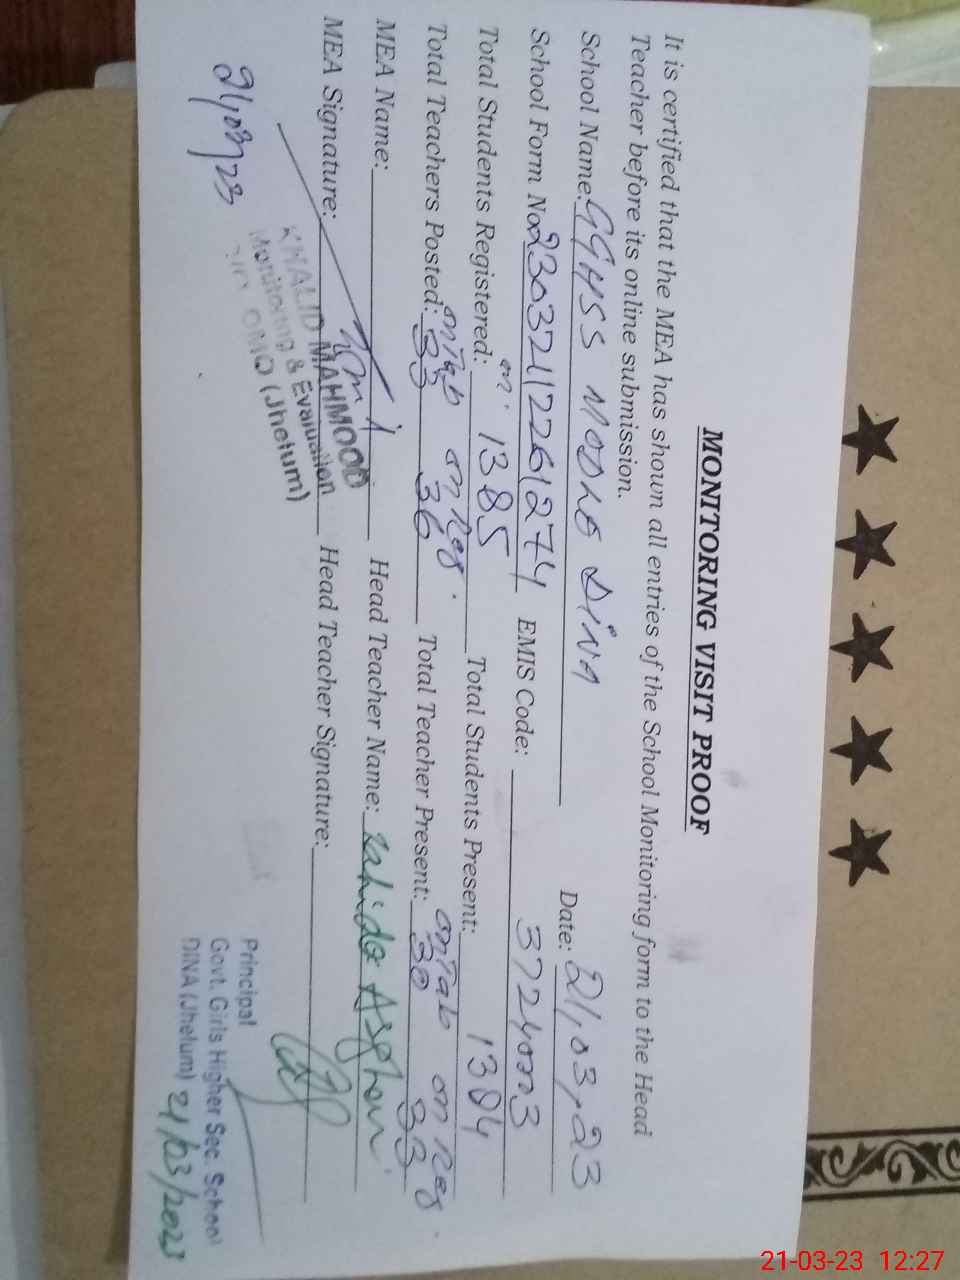 MONITORING VISIT PROOF
It is certified that the MEA has shown all entries of the School Monitoring form to the Head
Teacher before its online submission.
Date: 21,03,23
School Name: GGHSS MODLE DINA
School Form No: 23032112261274 EMIS Code: 37240003
Total Students Registered: 1385 Total Students Present: 1304
on Tab on Reg. on Tab on Reg.
Total Teachers Posted: 33 36 Total Teacher Present: 30 33
MEA Name: Head Teacher Name: Zahida Asghar
MEA Signature: Head Teacher Signature:
KHALID MAHMOOD
Monitoring & Evaluation
(Jhelum)
21/03/23
Principal
Govt. Girls Higher Sec. School
DINA (Jhelum) 21/03/2023
21-03-23 12:27